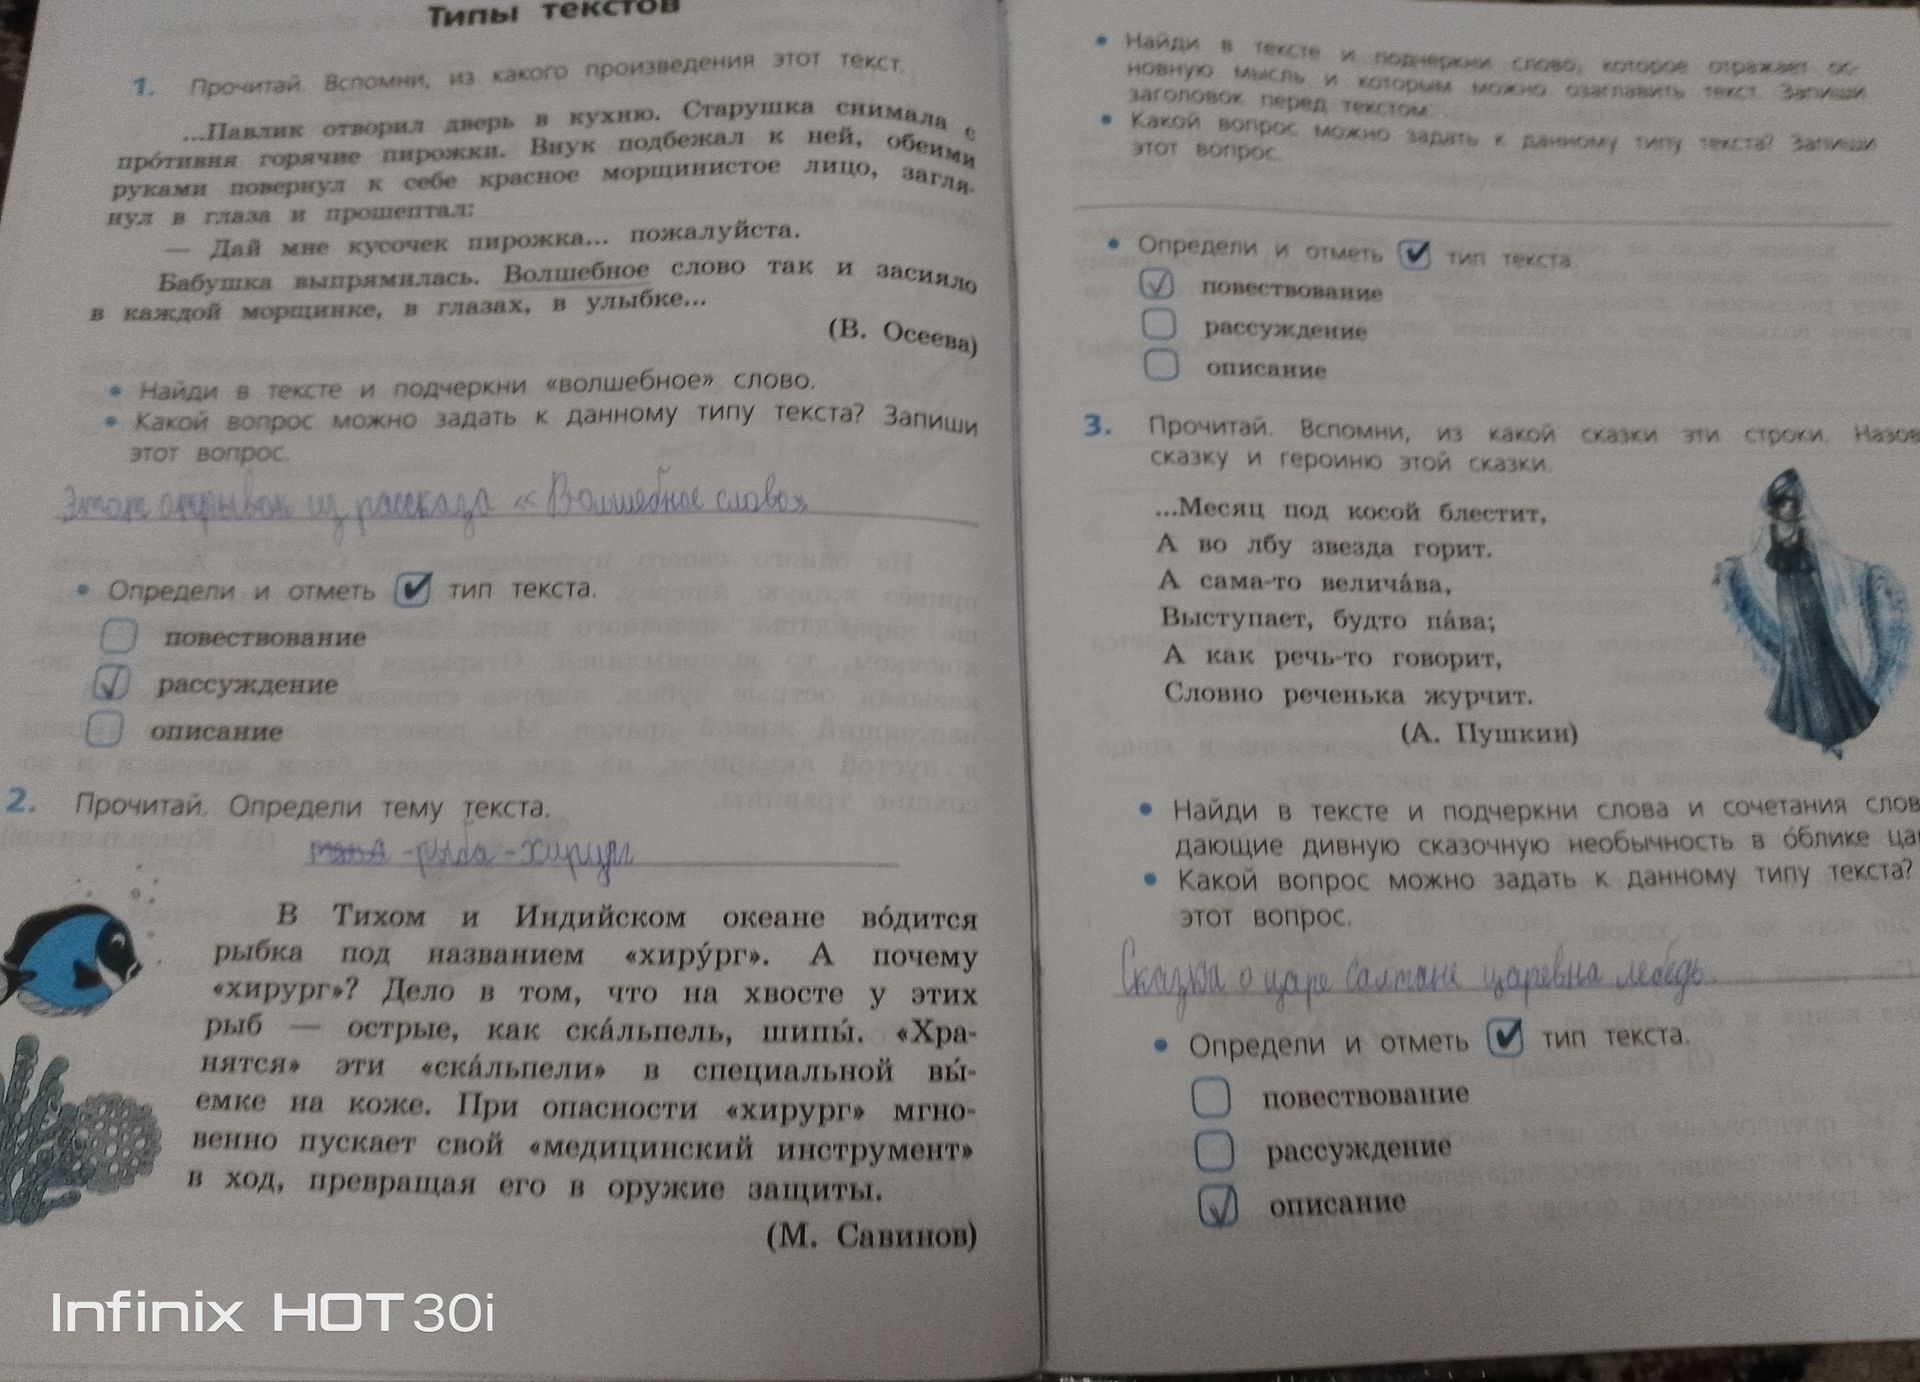 Типы текстов
1. Прочитай. Вспомни, из какого произведения этот текст.
...Павлик отворил дверь в кухню. Старушка снимала с
про́тивня горячие пирожки. Внук подбежал к ней, обеими
руками повернул к себе красное морщинистое лицо, загля-
нул в глаза и прошептал:
— Дай мне кусочек пирожка... пожалуйста.
Бабушка выпрямилась. Волшебное слово так и засияло
в каждой морщинке, в глазах, в улыбке...
(В. Осеева)
• Найди в тексте и подчеркни «волшебное» слово.
• Какой вопрос можно задать к данному типу текста? Запиши
этот вопрос.
Этот отрывок из рассказа «Волшебное слово»
• Определи и отметь ✓ тип текста.
повествование
рассуждение
описание
2. Прочитай. Определи тему текста.
-рыба-хирург
В Тихом и Индийском океане во́дится
рыбка под названием «хиру́рг». А почему
«хирург»? Дело в том, что на хвосте у этих
рыб — острые, как ска́льпель, шипы́. «Хра-
нятся» эти «ска́льпели» в специальной вы́-
емке на коже. При опасности «хирург» мгно-
венно пускает свой «медицинский инструмент»
в ход, превращая его в оружие защиты.
(М. Савинов)
Infinix HOT 30i
• Найди в тексте и подчеркни слово, которое отражает ос-
новную мысль и которым можно озаглавить текст. Запиши
заголовок перед текстом.
• Какой вопрос можно задать к данному типу текста? Запиши
этот вопрос.
• Определи и отметь ✓ тип текста.
повествование
рассуждение
описание
3. Прочитай. Вспомни, из какой сказки эти строки. Назов
сказку и героиню этой сказки.
...Месяц под косой блестит,
А во лбу звезда горит.
А сама-то велича́ва,
Выступает, будто па́ва;
А как речь-то говорит,
Словно реченька журчит.
(А. Пушкин)
• Найди в тексте и подчеркни слова и сочетания слов
дающие дивную сказочную необычность в о́блике ца
• Какой вопрос можно задать к данному типу текста?
этот вопрос.
Сказка о царе Салтане царевна лебедь.
• Определи и отметь ✓ тип текста.
повествование
рассуждение
описание